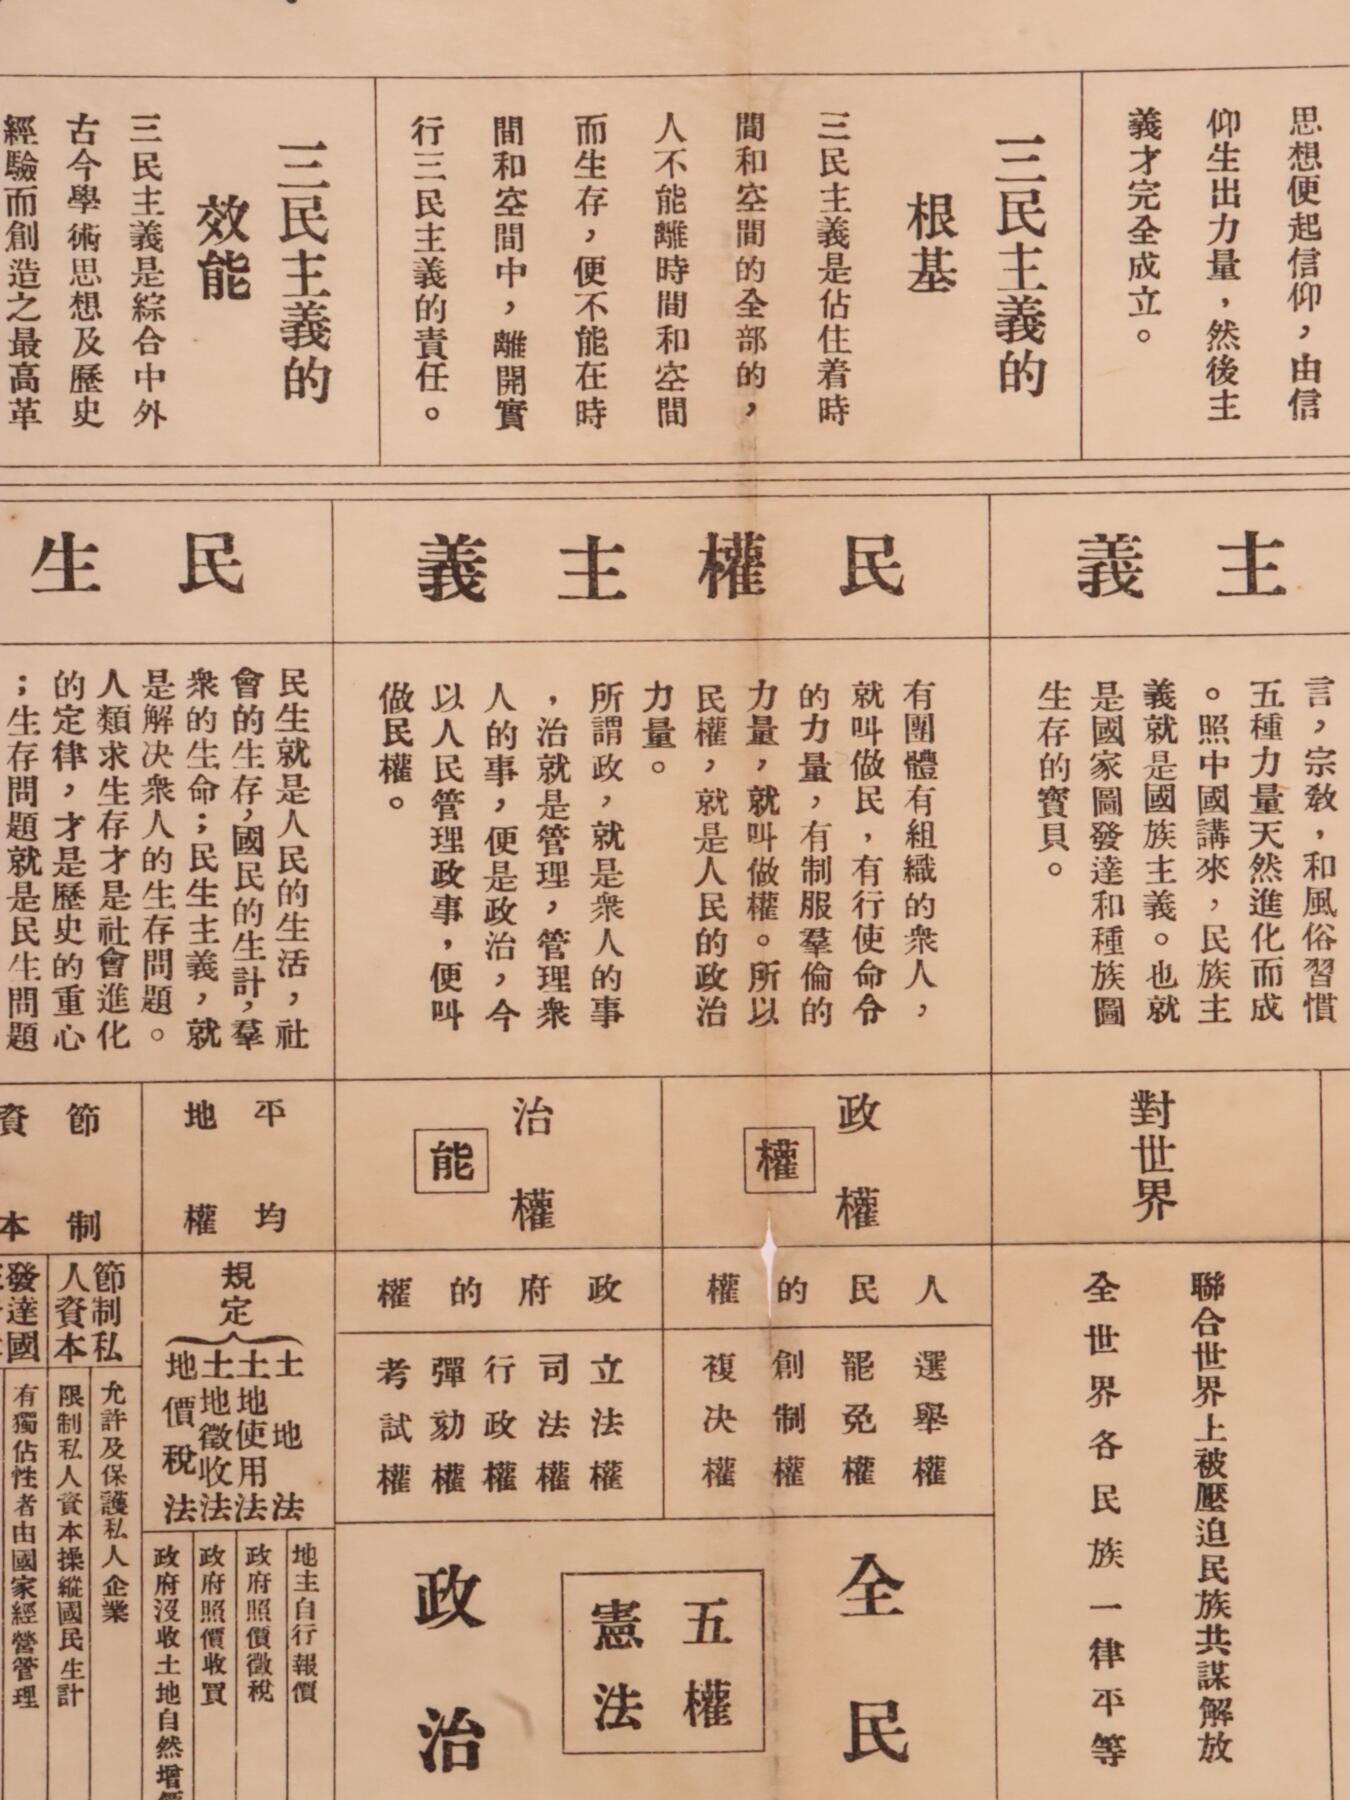 思想便起信仰，由信
仰生出力量，然後主
義才完全成立。
三民主義的
根基
三民主義是佔住着時
間和空間的全部的，
人不能離時間和空間
而生存，便不能在時
間和空間中，離開實
行三民主義的責任。
三民主義的
效能
三民主義是綜合中外
古今學術思想及歷史
經驗而創造之最高革
主義
言，宗教，和風俗習慣
五種力量天然進化而成
。照中國講來，民族主
義就是國族主義。也就
是國家圖發達和種族圖
生存的寶貝。
對世界
聯合世界上被壓迫民族共謀解放
全世界各民族一律平等
民權主義
有團體有組織的衆人，
就叫做民，有行使命令
的力量，有制服羣倫的
力量，就叫做權。所以
民權，就是人民的政治
力量。
所謂政，就是衆人的事
，治就是管理，管理衆
人的事，便是政治，今
以人民管理政事，便叫
做民權。
政權
權
人民的權
選舉權
罷免權
創制權
複决權
治權
能
政府的權
立法權
司法權
行政權
彈劾權
考試權
全民
五權
憲法
政治
民生
民生就是人民的生活，社
會的生存，國民的生計，羣
衆的生命；民生主義，就
是解决衆人的生存問題。
人類求生存才是社會進化
的定律，才是歷史的重心
；生存問題就是民生問題
平均
地權
規定
土地法
土地使用法
土地徵收法
地價稅法
地主自行報價
政府照價徵稅
政府照價收買
政府沒收土地自然增價
節制
資本
節制私
人資本
允許及保護私人企業
限制私人資本操縱國民生計
發達國
有獨佔性者由國家經營管理